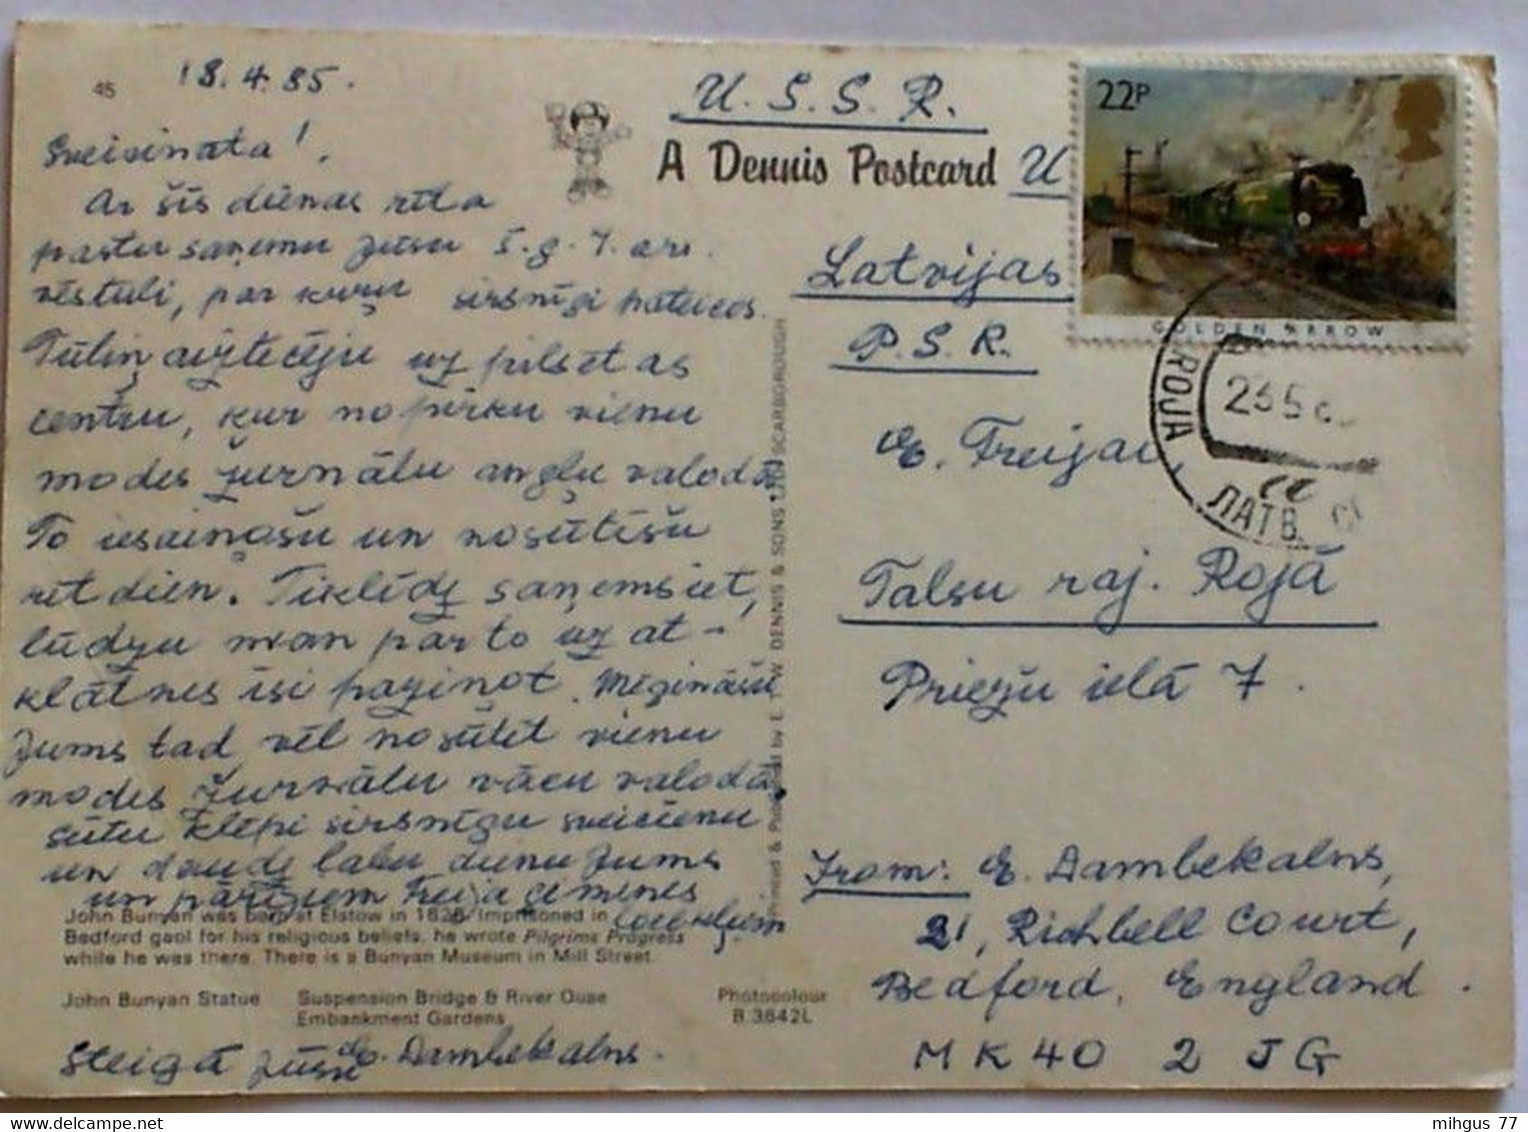 45
18.4.85.
Sveicināta!
Ar šīs dienas rīta
pastu saņemu Jūsu š.g. 7. apr.
vēstuli, par kuru sirsnīgi pateicos.
Tūliņ aiztecēju uz pilsētas
centru, kur nopirku vienu
modes žurnālu angļu valodā.
To iesaiņošu un nosūtīšu
rīt dien. Tiklīdz saņemsiet,
lūdzu man par to uz at-
klātnes īsi paziņot. Mēģināšu
Jums tad vēl nosūtīt vienu
modes žurnālu vācu valodā.
Sūtu klēpi sirsnīgu sveicienu
un daudz labu dienu Jums
un pārējiem Freija ģimenes
locekļiem
John Bunyan was born at Elstow in 1628. Imprisoned in
Bedford gaol for his religious beliefs, he wrote Pilgrims Progress
while he was there. There is a Bunyan Museum in Mill Street.
John Bunyan Statue Suspension Bridge & River Ouse
Embankment Gardens
Photocolour
B.3642L
Steigā Jūsu E. Dambekalns.
Printed & Published by E. T. W. DENNIS & SONS LTD. SCARBOROUGH
U.S.S.R.
A Dennis Postcard
U
Latvijas
P.S.R.
E. Freijai,
Talsu raj. Rojā
Priežu ielā 7.
From: E. Dambekalns,
21, Richbell Court,
Bedford, England.
MK40 2JG
22P
GOLDEN ARROW
ROJA
235
ЛАТВ.
mihgus 77